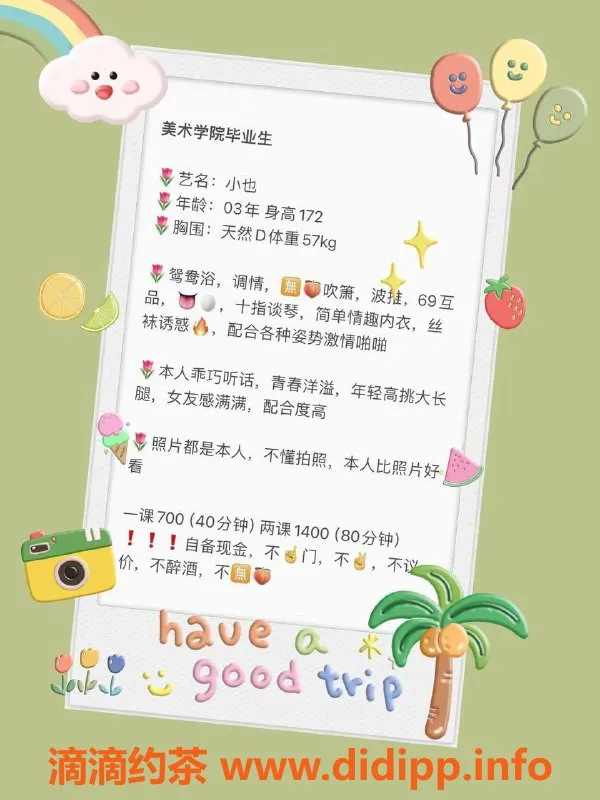 美术学院毕业生
🌷艺名：小也
🌷年龄：03年 身高172
🌷胸围：天然D体重57kg
🌷鸳鸯浴，调情，🈚🍑吹箫，波推，69互
品，👅⚪，十指谈琴，简单情趣内衣，丝
袜诱惑🔥，配合各种姿势激情啪啪
🌷本人乖巧听话，青春洋溢，年轻高挑大长
腿，女友感满满，配合度高
🌷照片都是本人，不懂拍照，本人比照片好
看
一课700（40分钟）两课1400（80分钟）
❗❗❗自备现金，不☝门，不✌，不议
价，不醉酒，不🈚🍑
have a
good trip
滴滴约茶 www.didipp.info